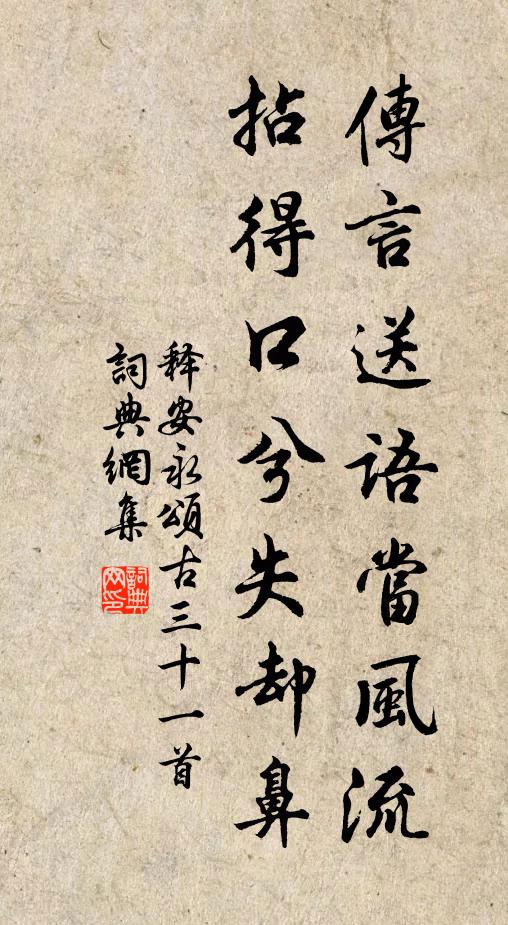 傳言送語當風流
拈得口兮失却鼻
释安永頌古三十一首
詞典網集
詞典網印